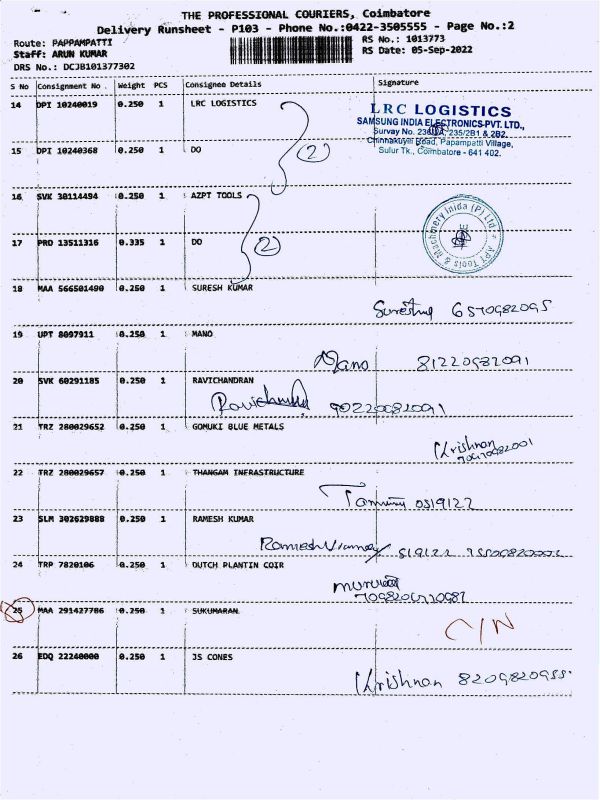 THE PROFESSIONAL COURIERS, Coimbatore
Delivery Runsheet - P103 - Phone No.:0422-3505555 - Page No.:2
Route: PAPPAMPATTI
Staff: ARUN KUMAR
DRS No.: DCJB101377302
RS No.: 1013773
RS Date: 05-Sep-2022
S No Consignment No . Weight PCS Consignee Details Signature
14 DPI 10240019 0.250 1 LRC LOGISTICS
LRC LOGISTICS
SAMSUNG INDIA ELECTRONICS PVT. LTD.,
235/2B1 & 2B2,
Chinnakuyili Road, Papampatti Village,
Sulur Tk., Coimbatore - 641 402.
15 DPI 10240368 0.250 1 DO
2
16 SVK 30114494 0.250 1 AZPT TOOLS
17 PRO 13511316 0.335 1 DO
2
18 MAA 566501490 0.250 1 SURESH KUMAR
19 UPT 8097911 0.250 1 MANO
Mano 81220982091
20 SVK 60291185 0.250 1 RAVICHANDRAN
21 TRZ 280029652 0.250 1 GOMUKI BLUE METALS
Krishnan
22 TRZ 280029657 0.250 1 THANGAM INFRASTRUCTURE
23 SLM 302629888 0.250 1 RAMESH KUMAR
24 TRP 7820106 0.250 1 DUTCH PLANTIN COIR
25 MAA 291427786 0.250 1 SUKUMARAN
C/N
26 EDQ 22240000 0.250 1 JS CONES
Krishnan 8209820955